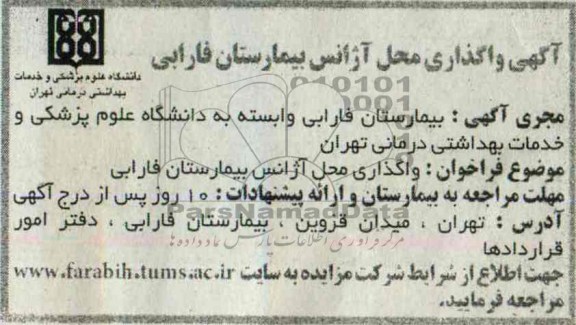 آگهی واگذاری محل آژانس بیمارستان فارابی
دانشگاه علوم پزشکی و خدمات
بهداشتی درمانی تهران
مجری آگهی : بیمارستان فارابی وابسته به دانشگاه علوم پزشکی و
خدمات بهداشتی درمانی تهران
موضوع فراخوان : واگذاری محل آژانس بیمارستان فارابی
مهلت مراجعه به بیمارستان و ارائه پیشنهادات : ۱۰ روز پس از درج آگهی
ParsNamadData
آدرس : تهران ، میدان قزوین ، بیمارستان فارابی ، دفتر امور
مرکز فرآوری اطلاعات پارس نماد داده ها
قراردادها
جهت اطلاع از شرایط شرکت مزایده به سایت www.farabih.tums.ac.ir
مراجعه فرمایید.